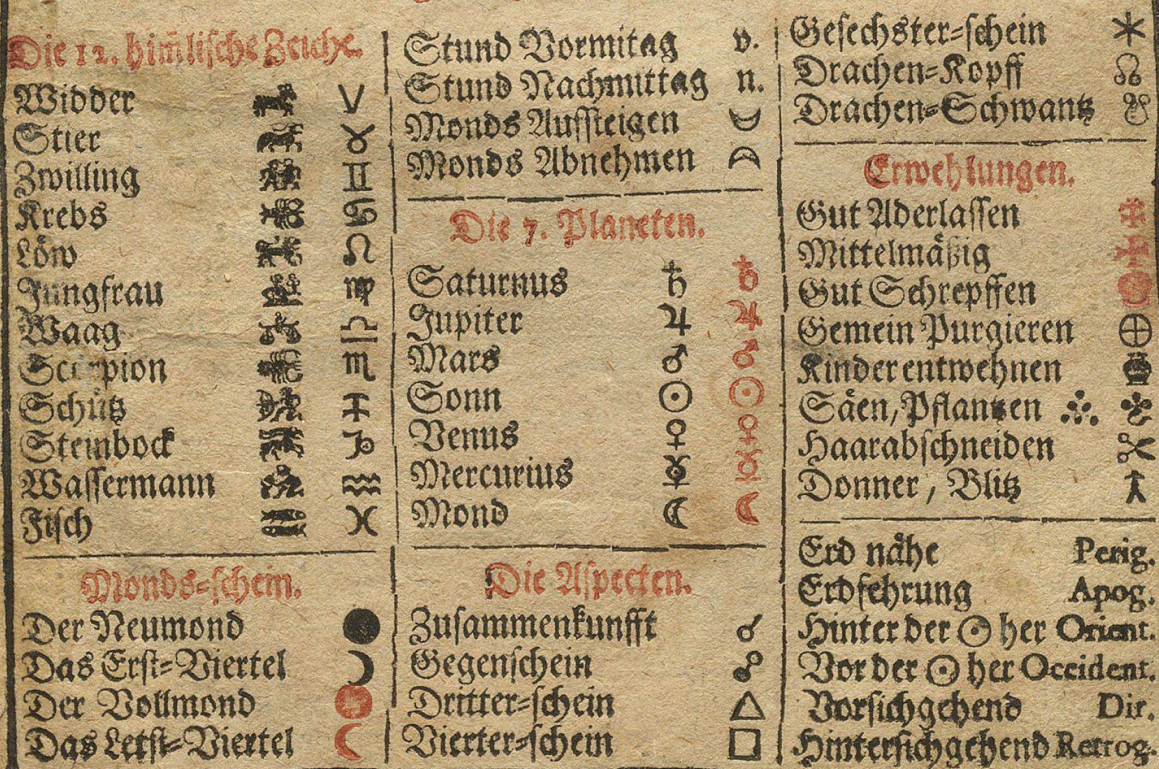 Die 12. him̃lische Zeiche.
Widder ♈
Stier ♉
Zwilling ♊
Krebs ♋
Löw ♌
Jungfrau ♍
Waag ♎
Scorpion ♏
Schütz ♐
Steinbock ♑
Wassermann ♒
Fisch ♓
Monds-schein.
Der Neumond
Das Erst-Viertel
Der Vollmond
Das Letst-Viertel
Stund Vormitag v.
Stund Nachmittag n.
Monds Auffsteigen
Monds Abnehmen
Die 7. Planeten.
Saturnus ♄ ♄
Jupiter ♃ ♃
Mars ♂ ♂
Sonn ☉ ☉
Venus ♀ ♀
Mercurius ☿ ☿
Mond ☾ ☾
Die Aspecten.
Zusammenkunfft ☌
Gegenschein ☍
Dritter-schein △
Vierter-schein □
Gesechster-schein ⚹
Drachen-Kopff ☊
Drachen-Schwantz ☋
Erwehlungen.
Gut Aderlassen
Mittelmäßig
Gut Schrepffen
Gemein Purgieren ⊕
Kinder entwehnen
Säen, Pflantzen
Haarabschneiden
Donner, Blitz
Erd nähe Perig.
Erdfehrung Apog.
Hinter der ☉ her Orient.
Vor der ☉ her Occident.
Vorsichgehend Dir.
Hintersichgehend Retrog.